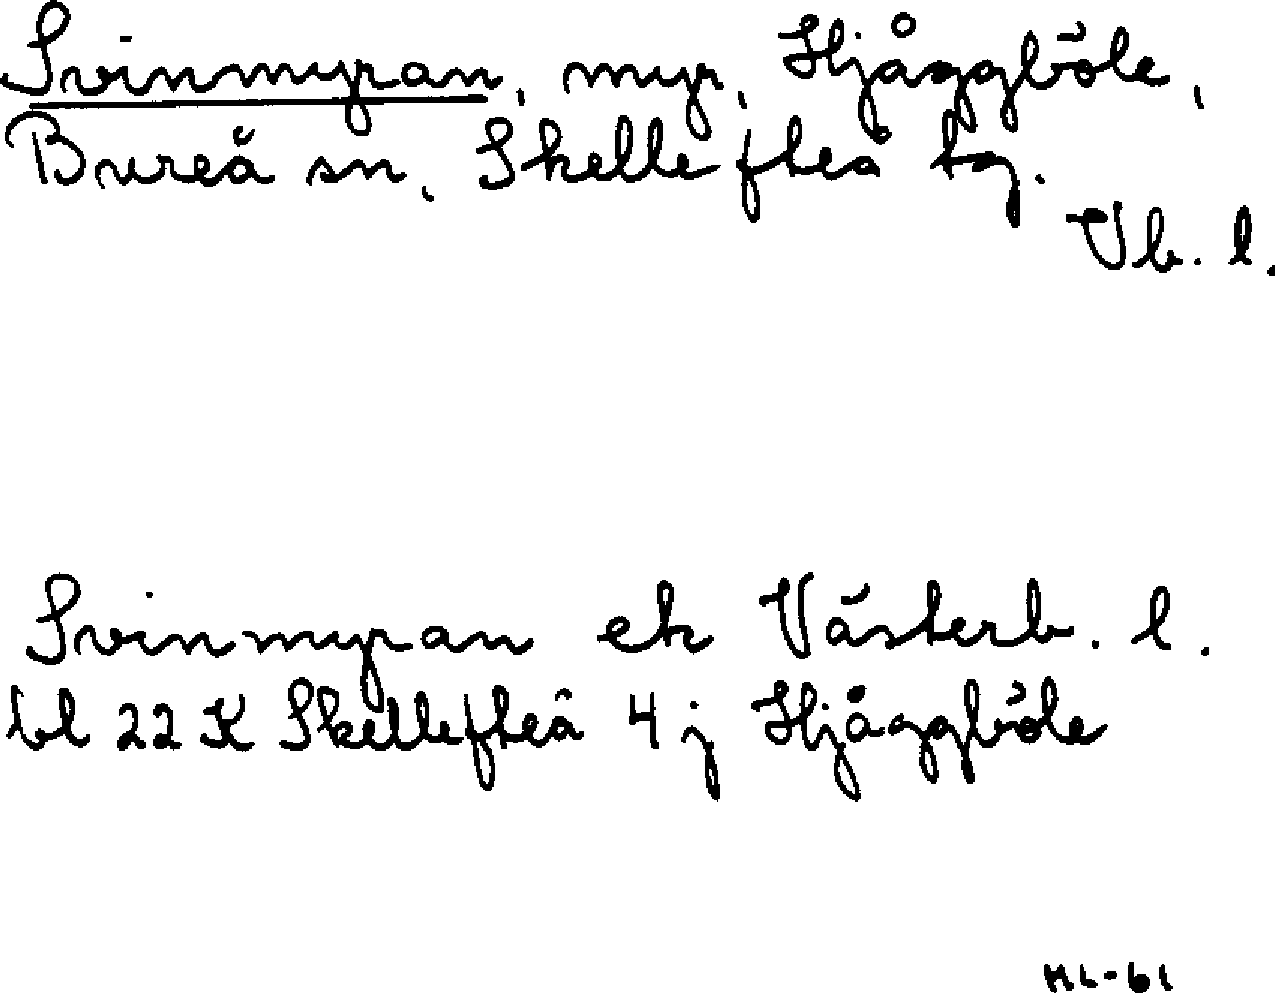 Svinmyran, myr, Hjåggböle,
Bureå sn, Skellefteå tg.
Vb. l.
Svinmyran ek Västerb. l.
bl 22 K Skellefteå 4 j Hjåggböle
HL-61